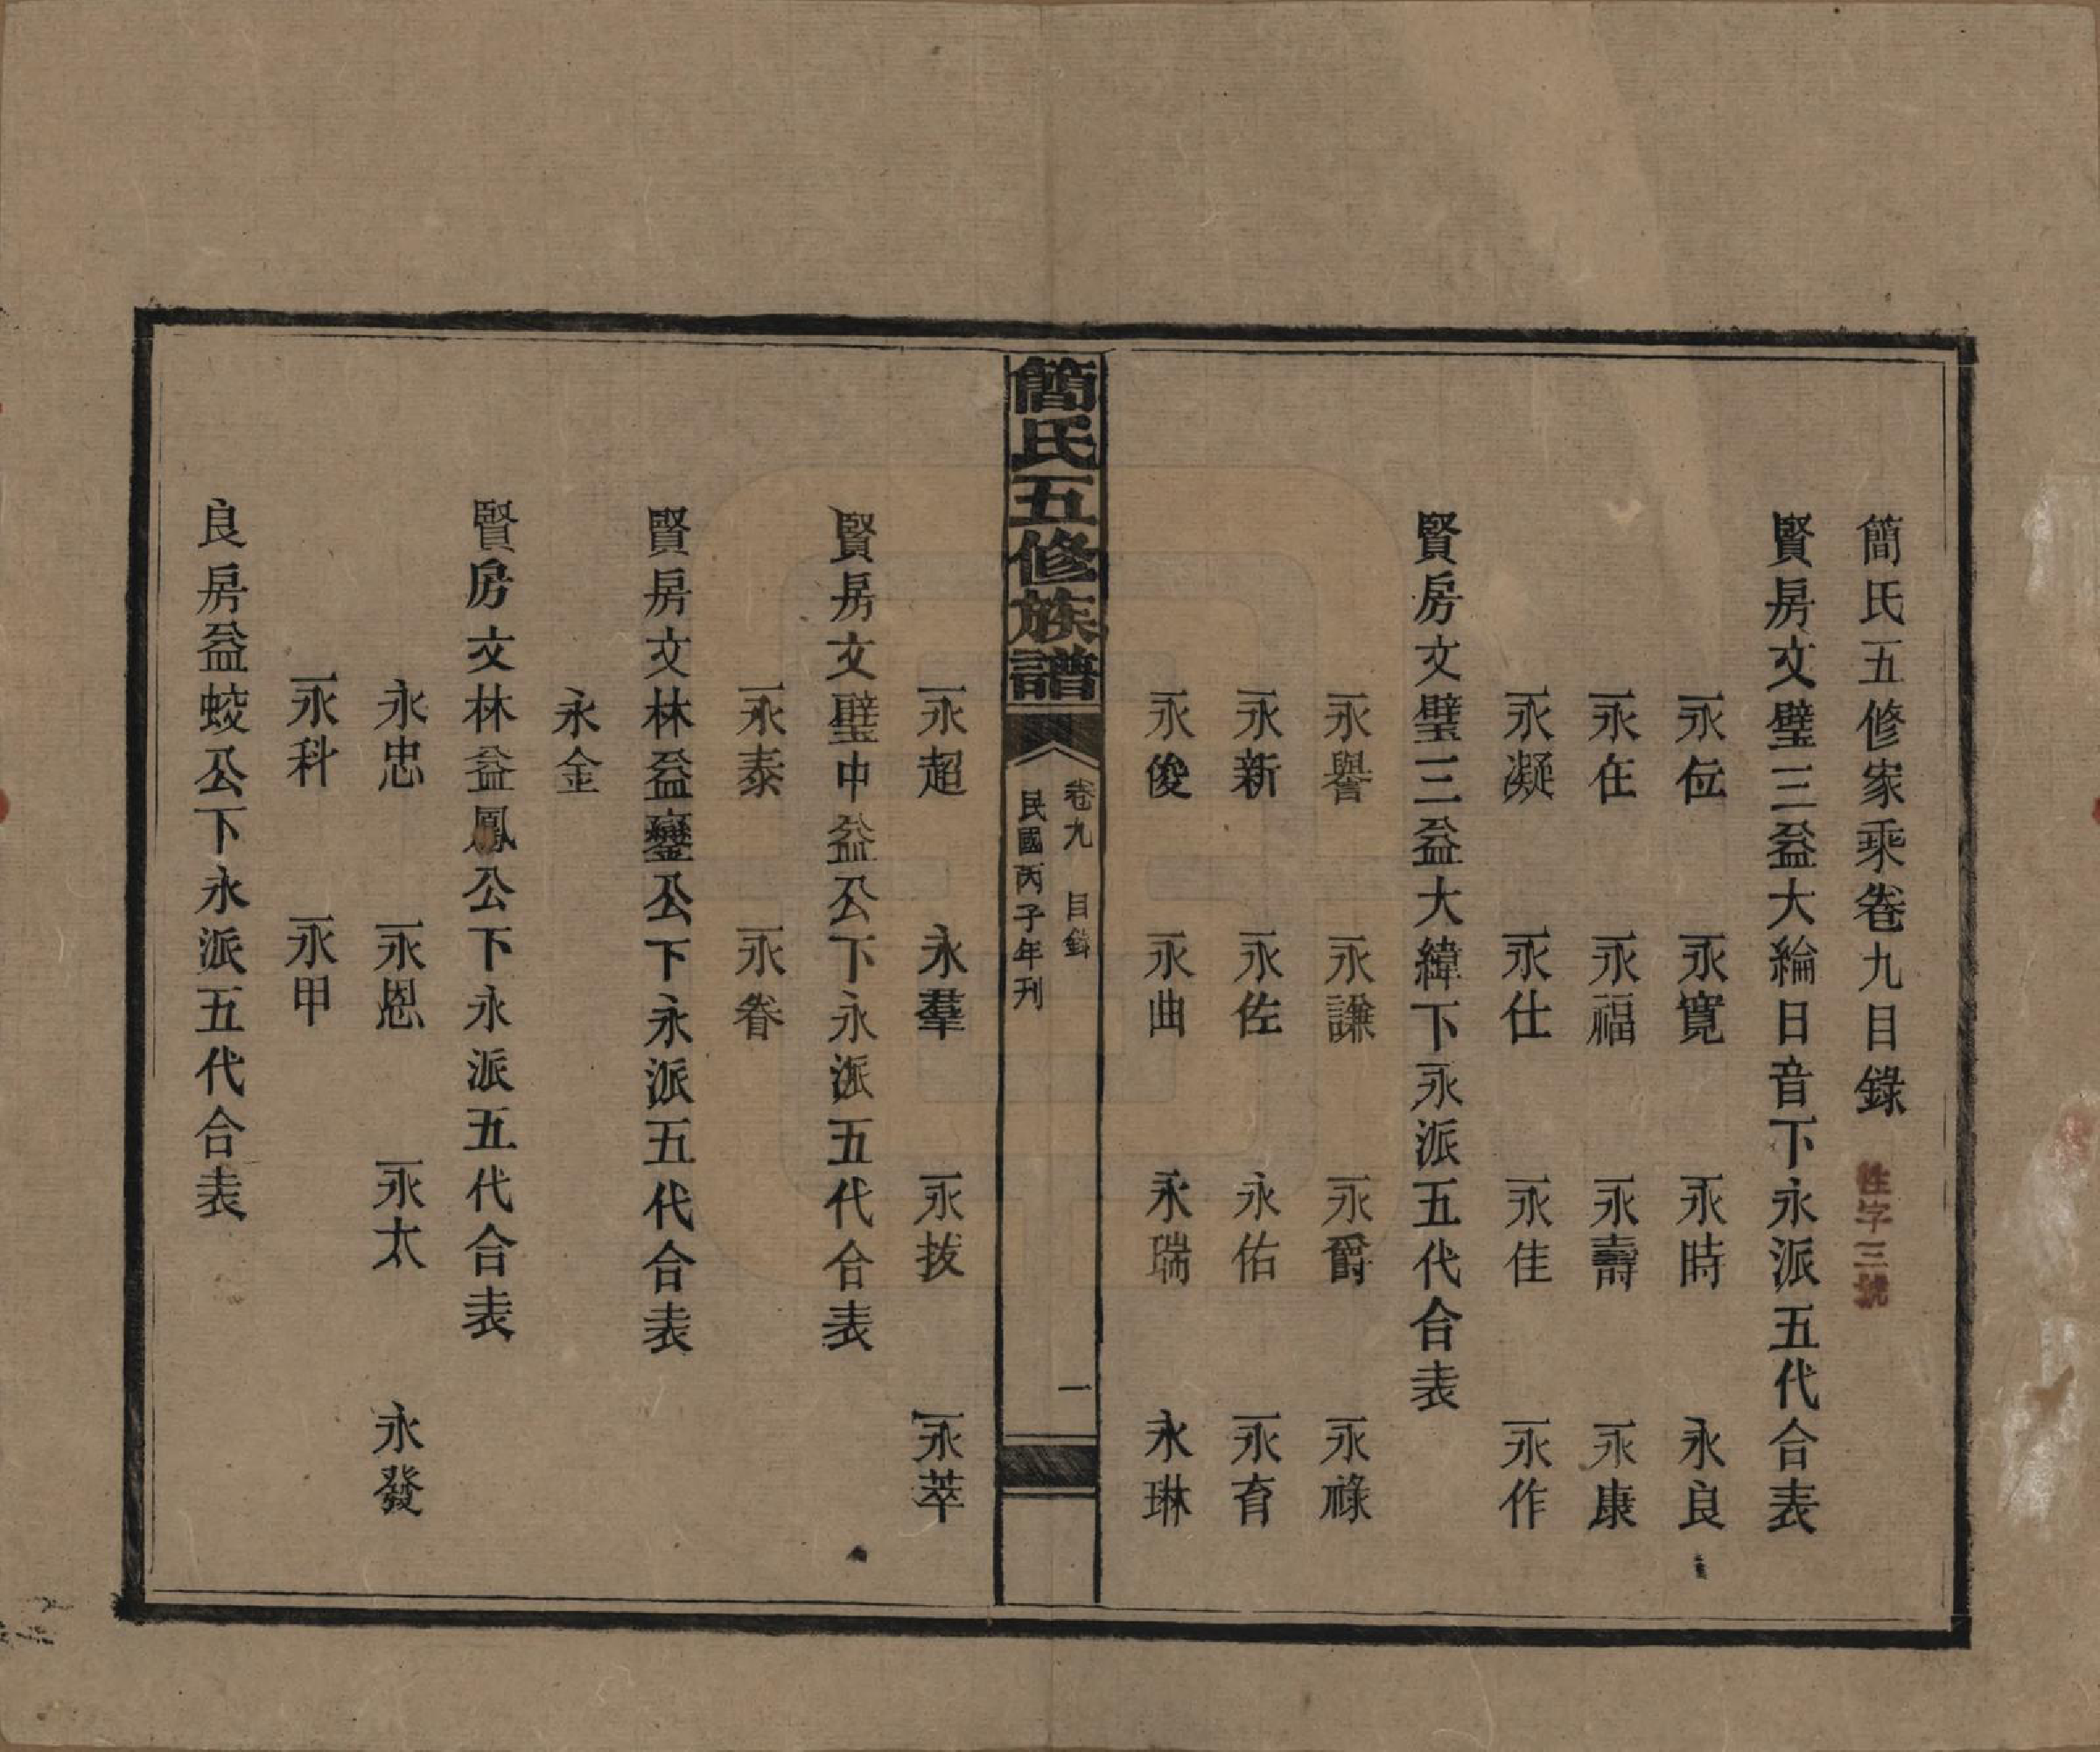 簡氏五修家乘卷九目錄 性字三號
賢房文璧三益大綸日音下永派五代合表
永位 永寬 永時 永良
永在 永福 永壽 永康
永凝 永仕 永佳 永作
賢房文璧三益大緯下永派五代合表
永譽 永謙 永爵 永祿
永新 永佐 永佑 永育
永俊 永曲 永瑞 永琳
簡氏五修族譜
卷九 目錄 一
民國丙子年刊
永超 永羣 永拔 永萃
賢房文璧中益公下永派五代合表
永泰 永眷
賢房文林益鑾公下永派五代合表
永金
賢房文林益鳳公下永派五代合表
永忠 永恩 永太 永發
永科 永甲
良房益蛟公下永派五代合表